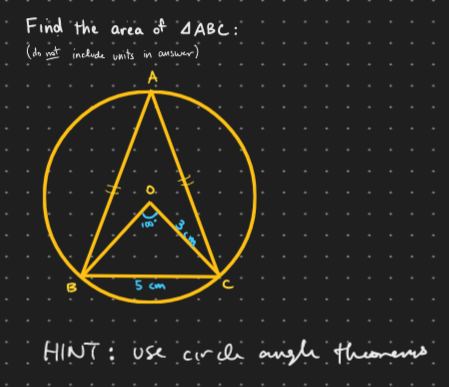 Find the area of ΔABC:
(do not include units in answer)
A
O
100°
3 cm
B
5 cm
C
HINT: use circle angle theorems